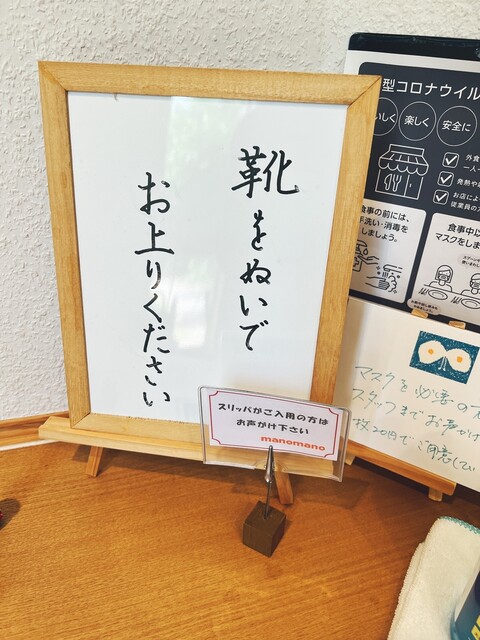 靴をぬいで
お上りください
スリッパがご入用の方は
お声がけ下さい
manomano
型コロナウイル
しく
楽しく
安全に
外食
一人
発熱や
お店によ
従業員の
食事の前には、
手洗い・消毒を
しましょう。
食事中以
マスクをしま
マスクを必要の
スタッフまでお声がけ
枚20円でご用意してい